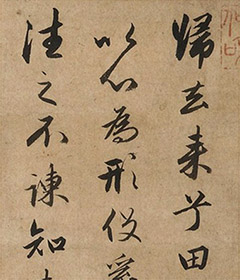 歸去来兮田
以心為形役奚
往之不諫知